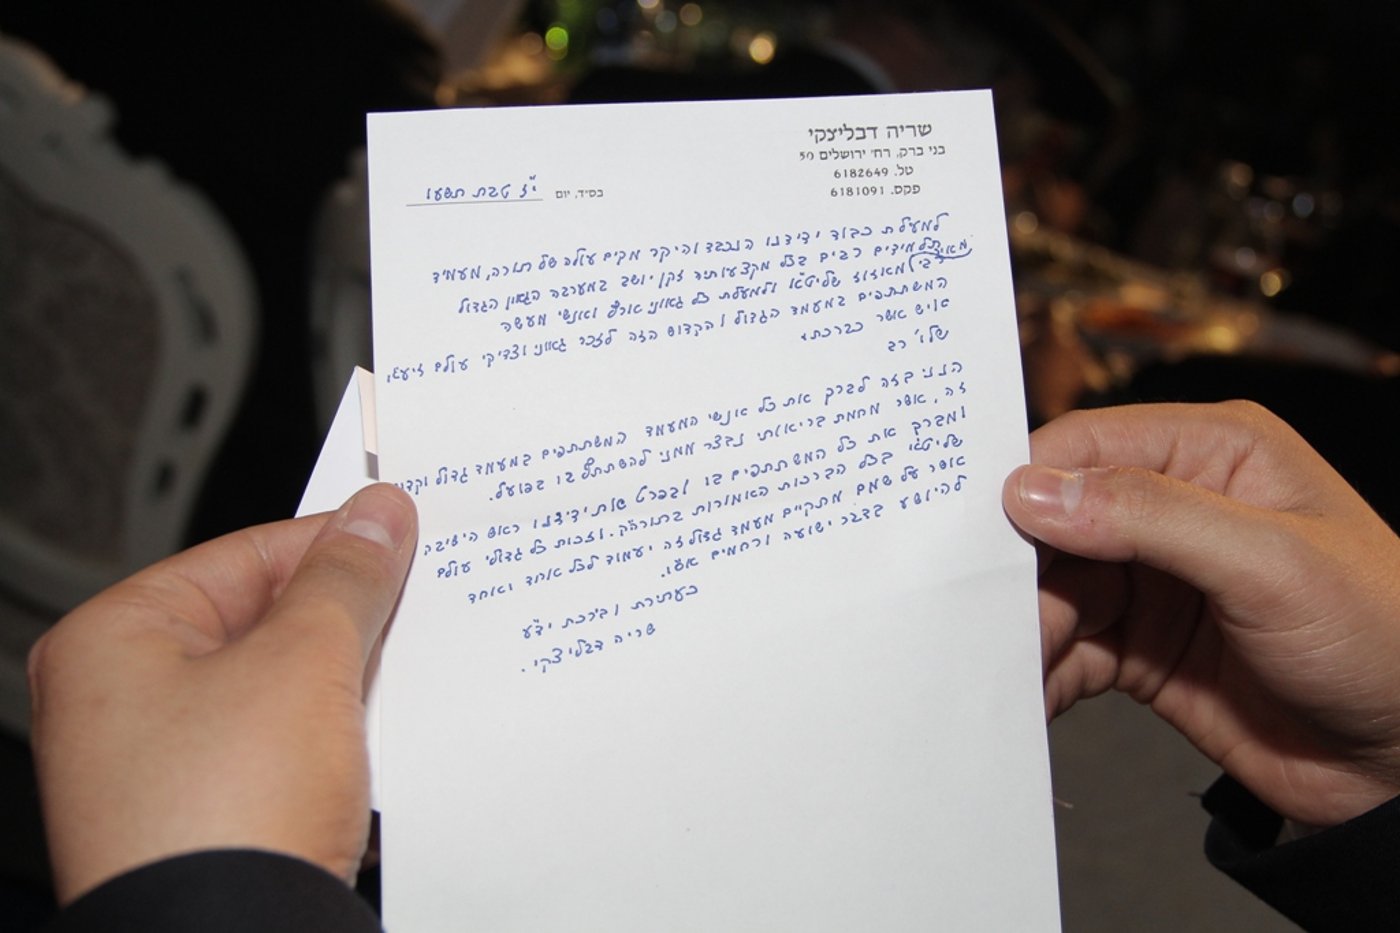 שריה דבליצקי
בני ברק, רח' ירושלים 50
טל. 6182649
פקס. 6181091
בס״ד, יום י״ז טבת תשעו
למעלת כבוד ידידנו הנכבד והיקר מקים עולה של תורה, מעמיד
תלמידים רבים בכל מקצעותיה זקן יושב במערבה הגאון הגדול
רבי מאיר מאזוז שליט״א ולמעלת כל גאוני ארץ ואנשי מעשה
המשתתפים במעמד הגדול והקדוש הזה לזכר גאוני וצדיקי עולם זיע״א,
איש אשר כברכתו.
שלו' רב
הנני בזה לברך את כל אנשי המעמד המשתתפים במעמד גדול וקדוש
זה, אשר מחמת בריאותי נבצר ממני להשתתף בו בפועל.
ומברך את כל המשתתפים בו ובפרט את ידידנו ראש הישיבה
שליט״א בכל הברכות האמורות בתורה״ק. וזכות כל גדולי עולם
אשר על שמם מתקיים מעמד גדול זה יעמוד לכל אחד ואחד
להיושע בדבר ישועה ורחמים אכי״ר.
בעתירת וברכת ידי״ע
שריה דבליצקי.